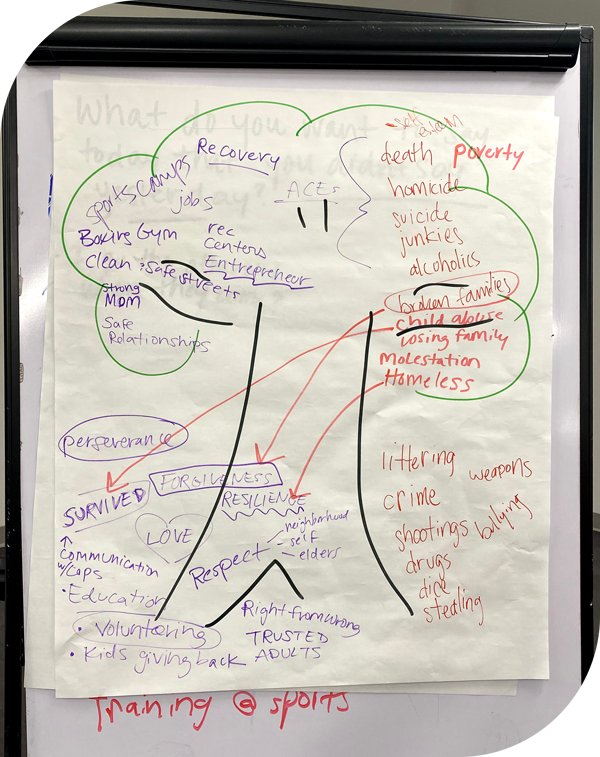 What do you want
today
Recovery
sports camps
jobs
Boxing Gym
rec
Centers
Clean & Safe streets
Entrepreneur
Strong
Mom
Safe
Relationships
ACEs
self
esteem
death
poverty
homicide
suicide
junkies
alcoholics
broken families
child abuse
losing family
Molestation
Homeless
perseverance
SURVIVED
FORGIVENESS
RESILIENCE
LOVE
Respect
neighborhood
self
elders
Communication
w/cops
• Education
• Volunteering
• Kids giving back
Right from wrong
TRUSTED
ADULTS
littering
weapons
crime
shootings
bullying
drugs
dice
stealing
Training @ sports